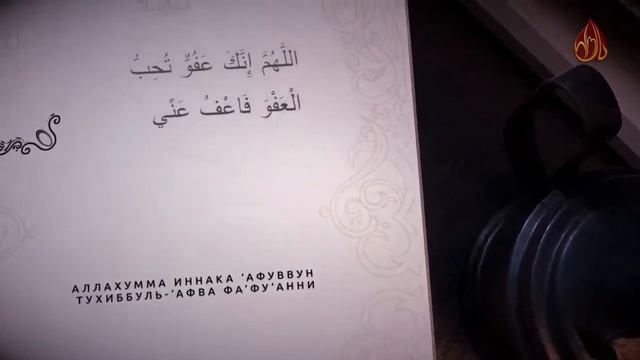 اللَّهُمَّ إِنَّكَ عَفُوٌّ تُحِبُّ
الْعَفْوَ فَاعْفُ عَنِّي
АЛЛАХУММА ИННАКА ‘АФУВВУН
ТУХИББУЛЬ-‘АФВА ФА‘ФУ‘АННИ